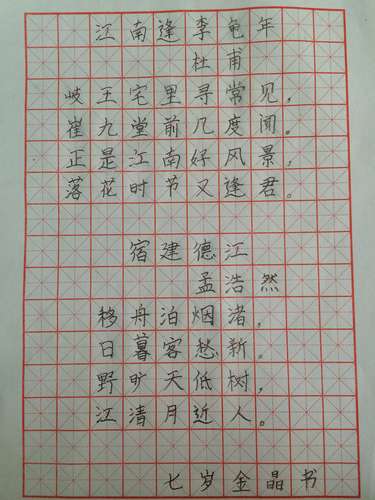 江南逢李龟年
杜甫
岐王宅里寻常见，
崔九堂前几度闻。
正是江南好风景，
落花时节又逢君。
宿建德江
孟浩然
移舟泊烟渚，
日暮客愁新。
野旷天低树，
江清月近人。
七岁金晶书